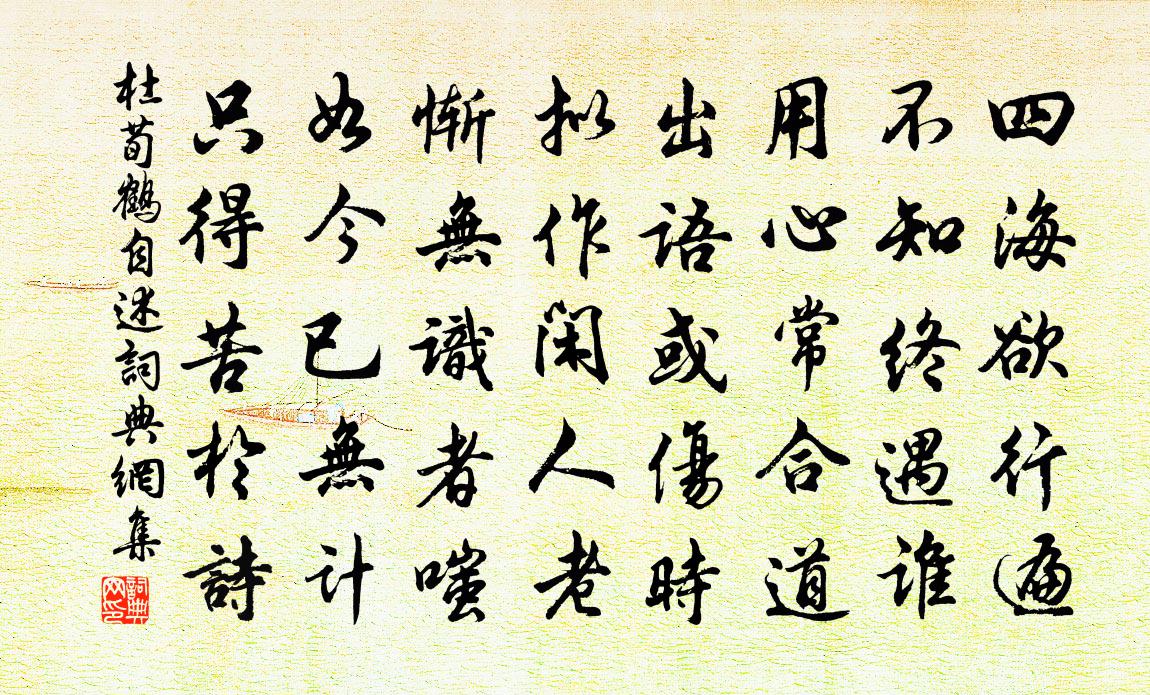 四海欲行遍
不知終遇誰
用心常合道
出語或傷時
拟作閑人老
慚無識者嗤
如今已無計
只得苦於詩
杜荀鶴自述詞典網集
詞典